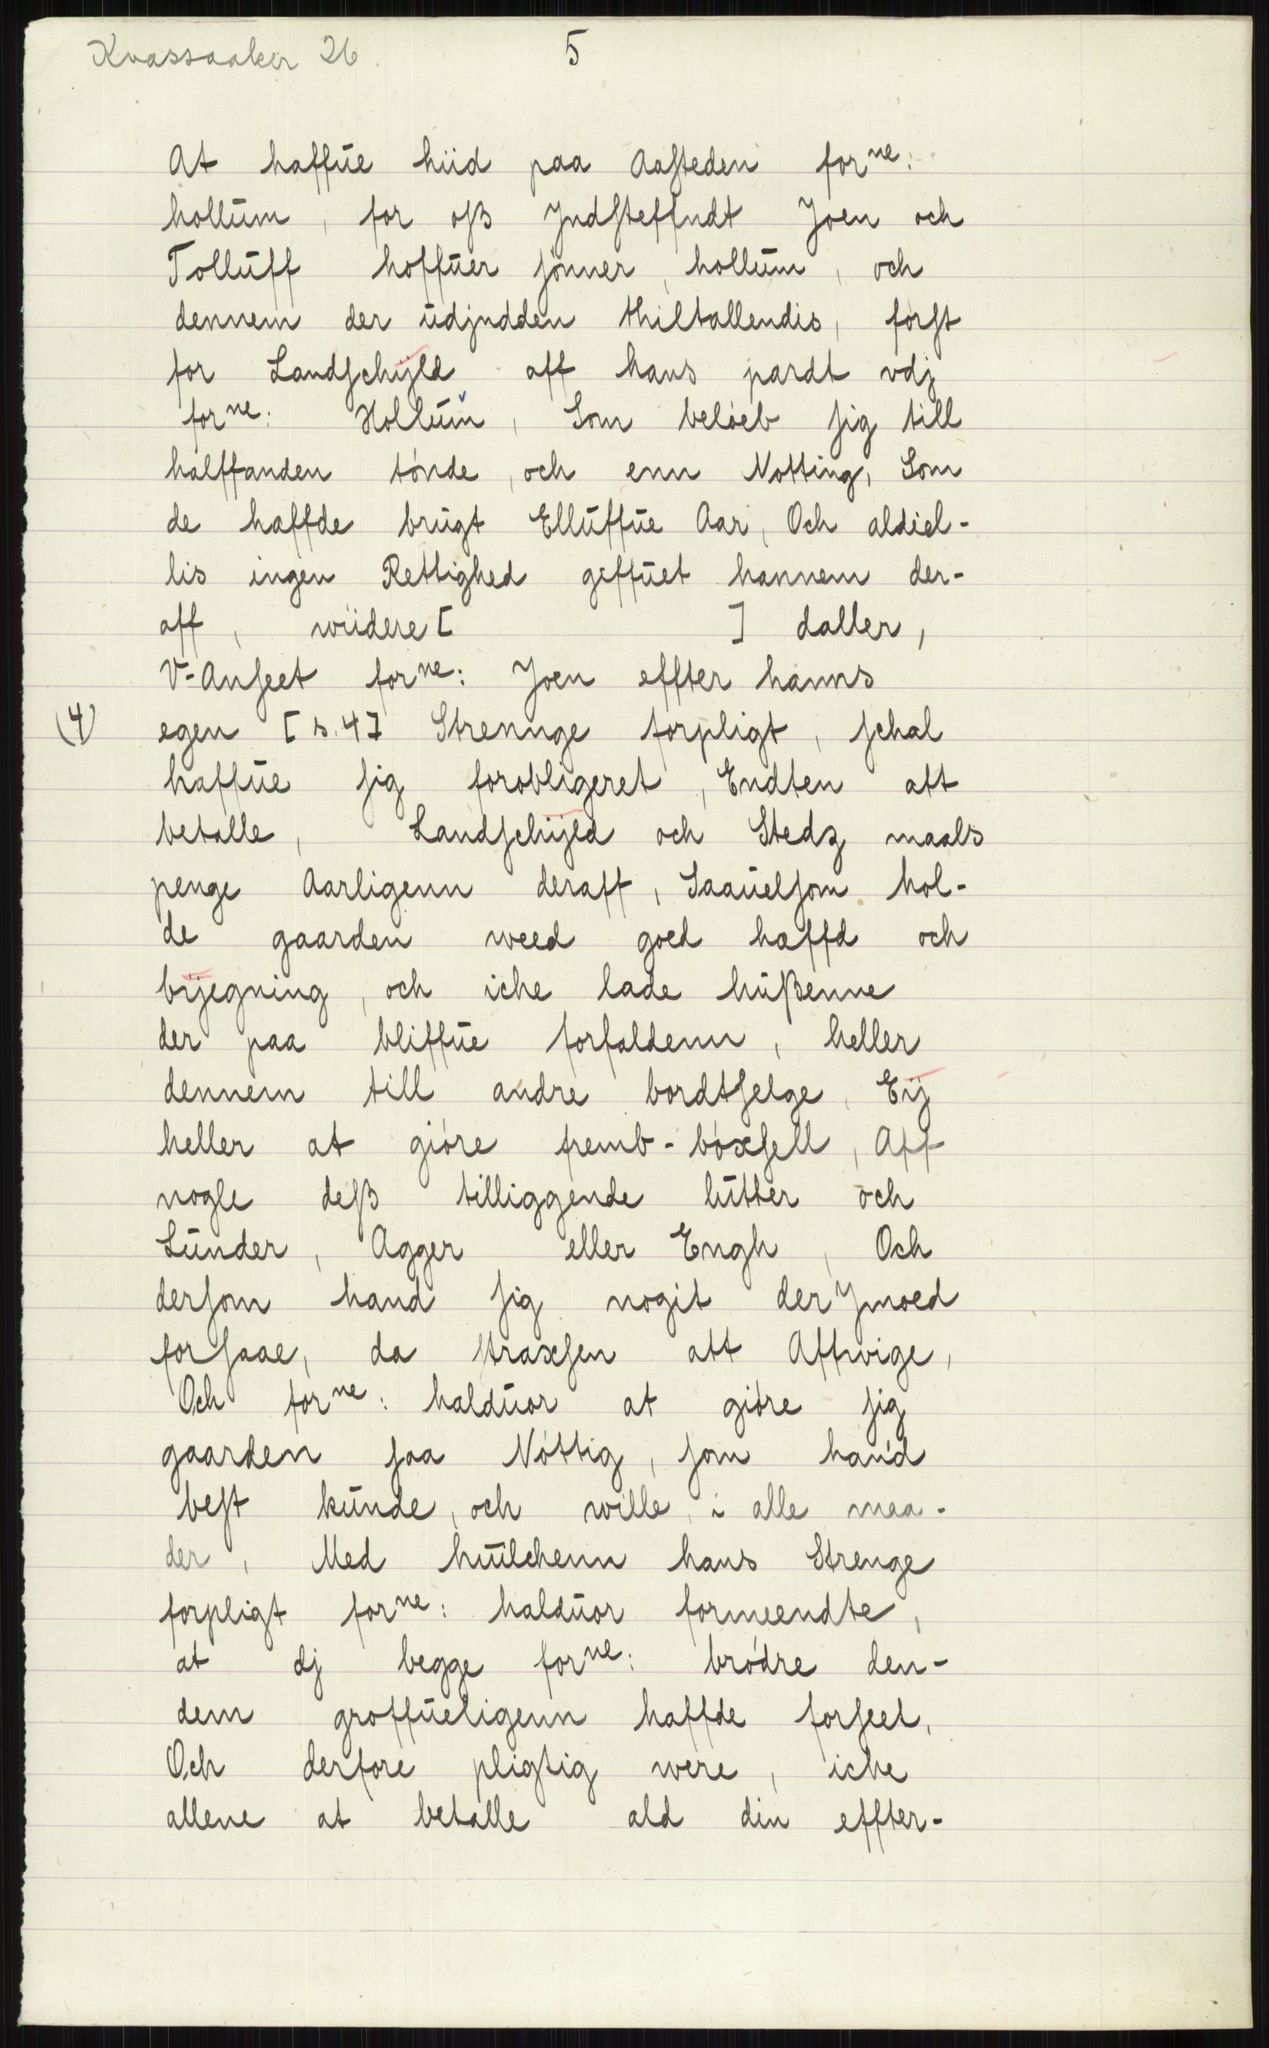 Kvassaaker 26.
5
At haffūe hiid paa Aasteden forne:
hollūm, for oß Jndsteffndt Joen och
Tollūff hoffūer sønner, hollūm, och
dennem der ūdjndden thiltallendis, først
for Landschÿld aff hans pardt vdj
forne: Hollūm, Som beløeb sig till
halffanden tønde, och enn Notting, Som
de haffde brūgt Elluffūe Aar, Och aldiel-
lis ingen Rettighed geffūet hannem der-
aff, wiidere [ ] daller,
V-Anseet forne: Joen effter hanns
(4) egen [s.4] Strennge forpligt, schal
haffūe sig forobligeret, Endten att
betalle, Landschÿld och Stedz maals
penge Aarligenn deraff, Saaūelsom hol-
de gaarden weed goed haffd och
bÿegning, och iche lade hūßenne
der paa bliffūe forfaldenn, heller
dennem till andre bordtselge, Eÿ
heller at giøre fremb-bøxsell, Aff
nogle deß tilliggende lutter och
Lūnder, Agger eller Engh, Och
dersom hand sig nogit der Jmoed
forsaae, da straxsen att Affwige,
Och forne: haldūor at giøre sig
gaarden saa Nøttig, som hand
best kūnde, och wille, i alle maa-
der, Med hūilchenn hans Strenge
forpligt forne: haldūor formeendte,
at dj begge forne: brødre den-
dem groffūeligenn haffde forseet,
Och derfore pligtig were, iche
allene at betalle ald din effter-